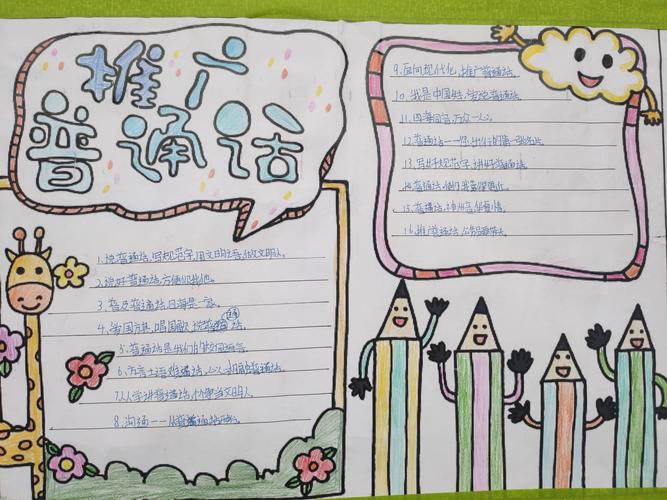 推广
普通话
1、说普通话,写规范字,用文明语,做文明人。
2、说好普通话,方便你我他。
3、普及普通话,四海是一家。
4、爱国旗,唱国歌,说普通话。
5、普通话是我们的校园语言。
6、方言土语难沟通,
7、人人学讲普通话,个个争当文明人。
8、沟通——从普通话开始。
9、面向现代化,推广普通话。
10、我是中国娃,爱说普通话。
11、四海同音,万众一心。
12、普通话——你出行的第一张名片。
13、写好规范字,讲好普通话。
14、普通话,
15、普通话,神州音,华夏情。
16、推广普通话,